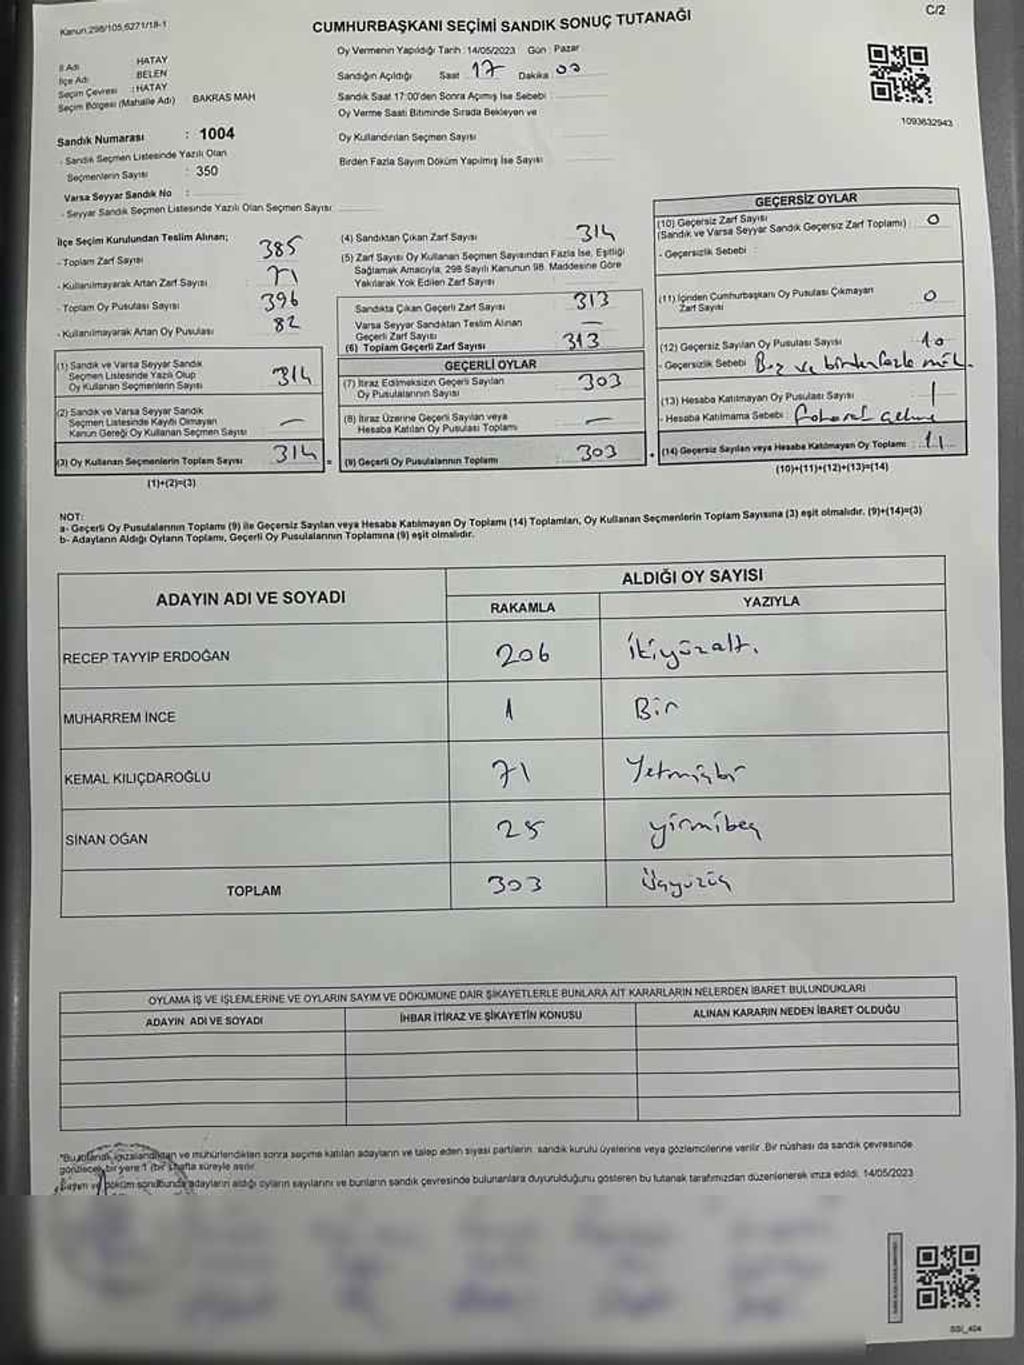 Kanun:298/105,6271/18-1
CUMHURBAŞKANI SEÇİMİ SANDIK SONUÇ TUTANAĞI
C/2
İl Adı : HATAY
İlçe Adı : BELEN
Seçim Çevresi : HATAY
Seçim Bölgesi (Mahalle Adı) : BAKRAS MAH
Sandık Numarası : 1004
- Sandık Seçmen Listesinde Yazılı Olan
Seçmenlerin Sayısı : 350
Varsa Seyyar Sandık No :
- Seyyar Sandık Seçmen Listesinde Yazılı Olan Seçmen Sayısı:
Oy Vermenin Yapıldığı Tarih : 14/05/2023 Gün : Pazar
Sandığın Açıldığı Saat 17 Dakika 00
Sandık Saat 17:00'den Sonra Açımış İse Sebebi :
Oy Verme Saati Bitiminde Sırada Bekleyen ve
Oy Kullandırılan Seçmen Sayısı
Birden Fazla Sayım Döküm Yapılmış İse Sayısı
1093632943
İlçe Seçim Kurulundan Teslim Alınan;
- Toplam Zarf Sayısı 385
- Kullanılmayarak Artan Zarf Sayısı 71
- Toplam Oy Pusulası Sayısı 396
- Kullanılmayarak Artan Oy Pusulası 82
(1) Sandık ve Varsa Seyyar Sandık
Seçmen Listesinde Yazılı Olup
Oy Kullanan Seçmenlerin Sayısı 314
(2) Sandık ve Varsa Seyyar Sandık
Seçmen Listesinde Kayıtlı Olmayan
Kanun Gereği Oy Kullanan Seçmen Sayısı —
(3) Oy Kullanan Seçmenlerin Toplam Sayısı 314 =
(1)+(2)=(3)
(4) Sandıktan Çıkan Zarf Sayısı 314
(5) Zarf Sayısı Oy Kullanan Seçmen Sayısından Fazla İse, Eşitliği
Sağlamak Amacıyla, 298 Sayılı Kanunun 98. Maddesine Göre
Yakılarak Yok Edilen Zarf Sayısı
Sandıkta Çıkan Geçerli Zarf Sayısı 313
Varsa Seyyar Sandıktan Teslim Alınan
Geçerli Zarf Sayısı —
(6) Toplam Geçerli Zarf Sayısı 313
GEÇERLİ OYLAR
(7) İtiraz Edilmeksizin Geçerli Sayılan
Oy Pusulasının Sayısı 303
(8) İtiraz Üzerine Geçerli Sayılan veya
Hesaba Katılan Oy Pusulası Toplamı —
(9) Geçerli Oy Pusulalarının Toplamı 303
GEÇERSİZ OYLAR
(10) Geçersiz Zarf Sayısı
(Sandık ve Varsa Seyyar Sandık Geçersiz Zarf Toplamı) 0
- Geçersizlik Sebebi :
(11) İçinden Cumhurbaşkanı Oy Pusulası Çıkmayan
Zarf Sayısı 0
(12) Geçersiz Sayılan Oy Pusulası Sayısı 10
- Geçersizlik Sebebi Boş ve birden fazla müh.
(13) Hesaba Katılmayan Oy Pusulası Sayısı 1
- Hesaba Katılmama Sebebi :
(14) Geçersiz Sayılan veya Hesaba Katılmayan Oy Toplamı 11
(10)+(11)+(12)+(13)=(14)
NOT:
a- Geçerli Oy Pusulalarının Toplamı (9) ile Geçersiz Sayılan veya Hesaba Katılmayan Oy Toplamı (14) Toplamları, Oy Kullanan Seçmenlerin Toplam Sayısına (3) eşit olmalıdır. (9)+(14)=(3)
b- Adayların Aldığı Oyların Toplamı, Geçerli Oy Pusulalarının Toplamına (9) eşit olmalıdır.
ADAYIN ADI VE SOYADI ALDIĞI OY SAYISI
RAKAMLA YAZIYLA
RECEP TAYYİP ERDOĞAN 206 İkiyüzaltı
MUHARREM İNCE 1 Bir
KEMAL KILIÇDAROĞLU 71 Yetmişbir
SİNAN OĞAN 25 yirmibeş
TOPLAM 303 Üçyüzüç
OYLAMA İŞ VE İŞLEMLERİNE VE OYLARIN SAYIM VE DÖKÜMÜNE DAİR ŞİKAYETLERLE BUNLARA AİT KARARLARIN NELERDEN İBARET BULUNDUKLARI
ADAYIN ADI VE SOYADI İHBAR İTİRAZ VE ŞİKAYETİN KONUSU ALINAN KARARIN NEDEN İBARET OLDUĞU
imzalandıktan ve mühürlendikten sonra seçime katılan adayların ve talep eden siyasi partilerin sandık kurulu üyelerine veya gözlemcilerine verilir. Bir nüshası da sandık çevresinde
bir yere 1 (bir) hafta süreyle asılır.
döküm sonucunda adayların aldığı oyların sayılarını ve bunların sandık çevresinde bulunanlara duyurulduğunu gösteren bu tutanak tarafımızdan düzenlenerek imza edildi. 14/05/2023